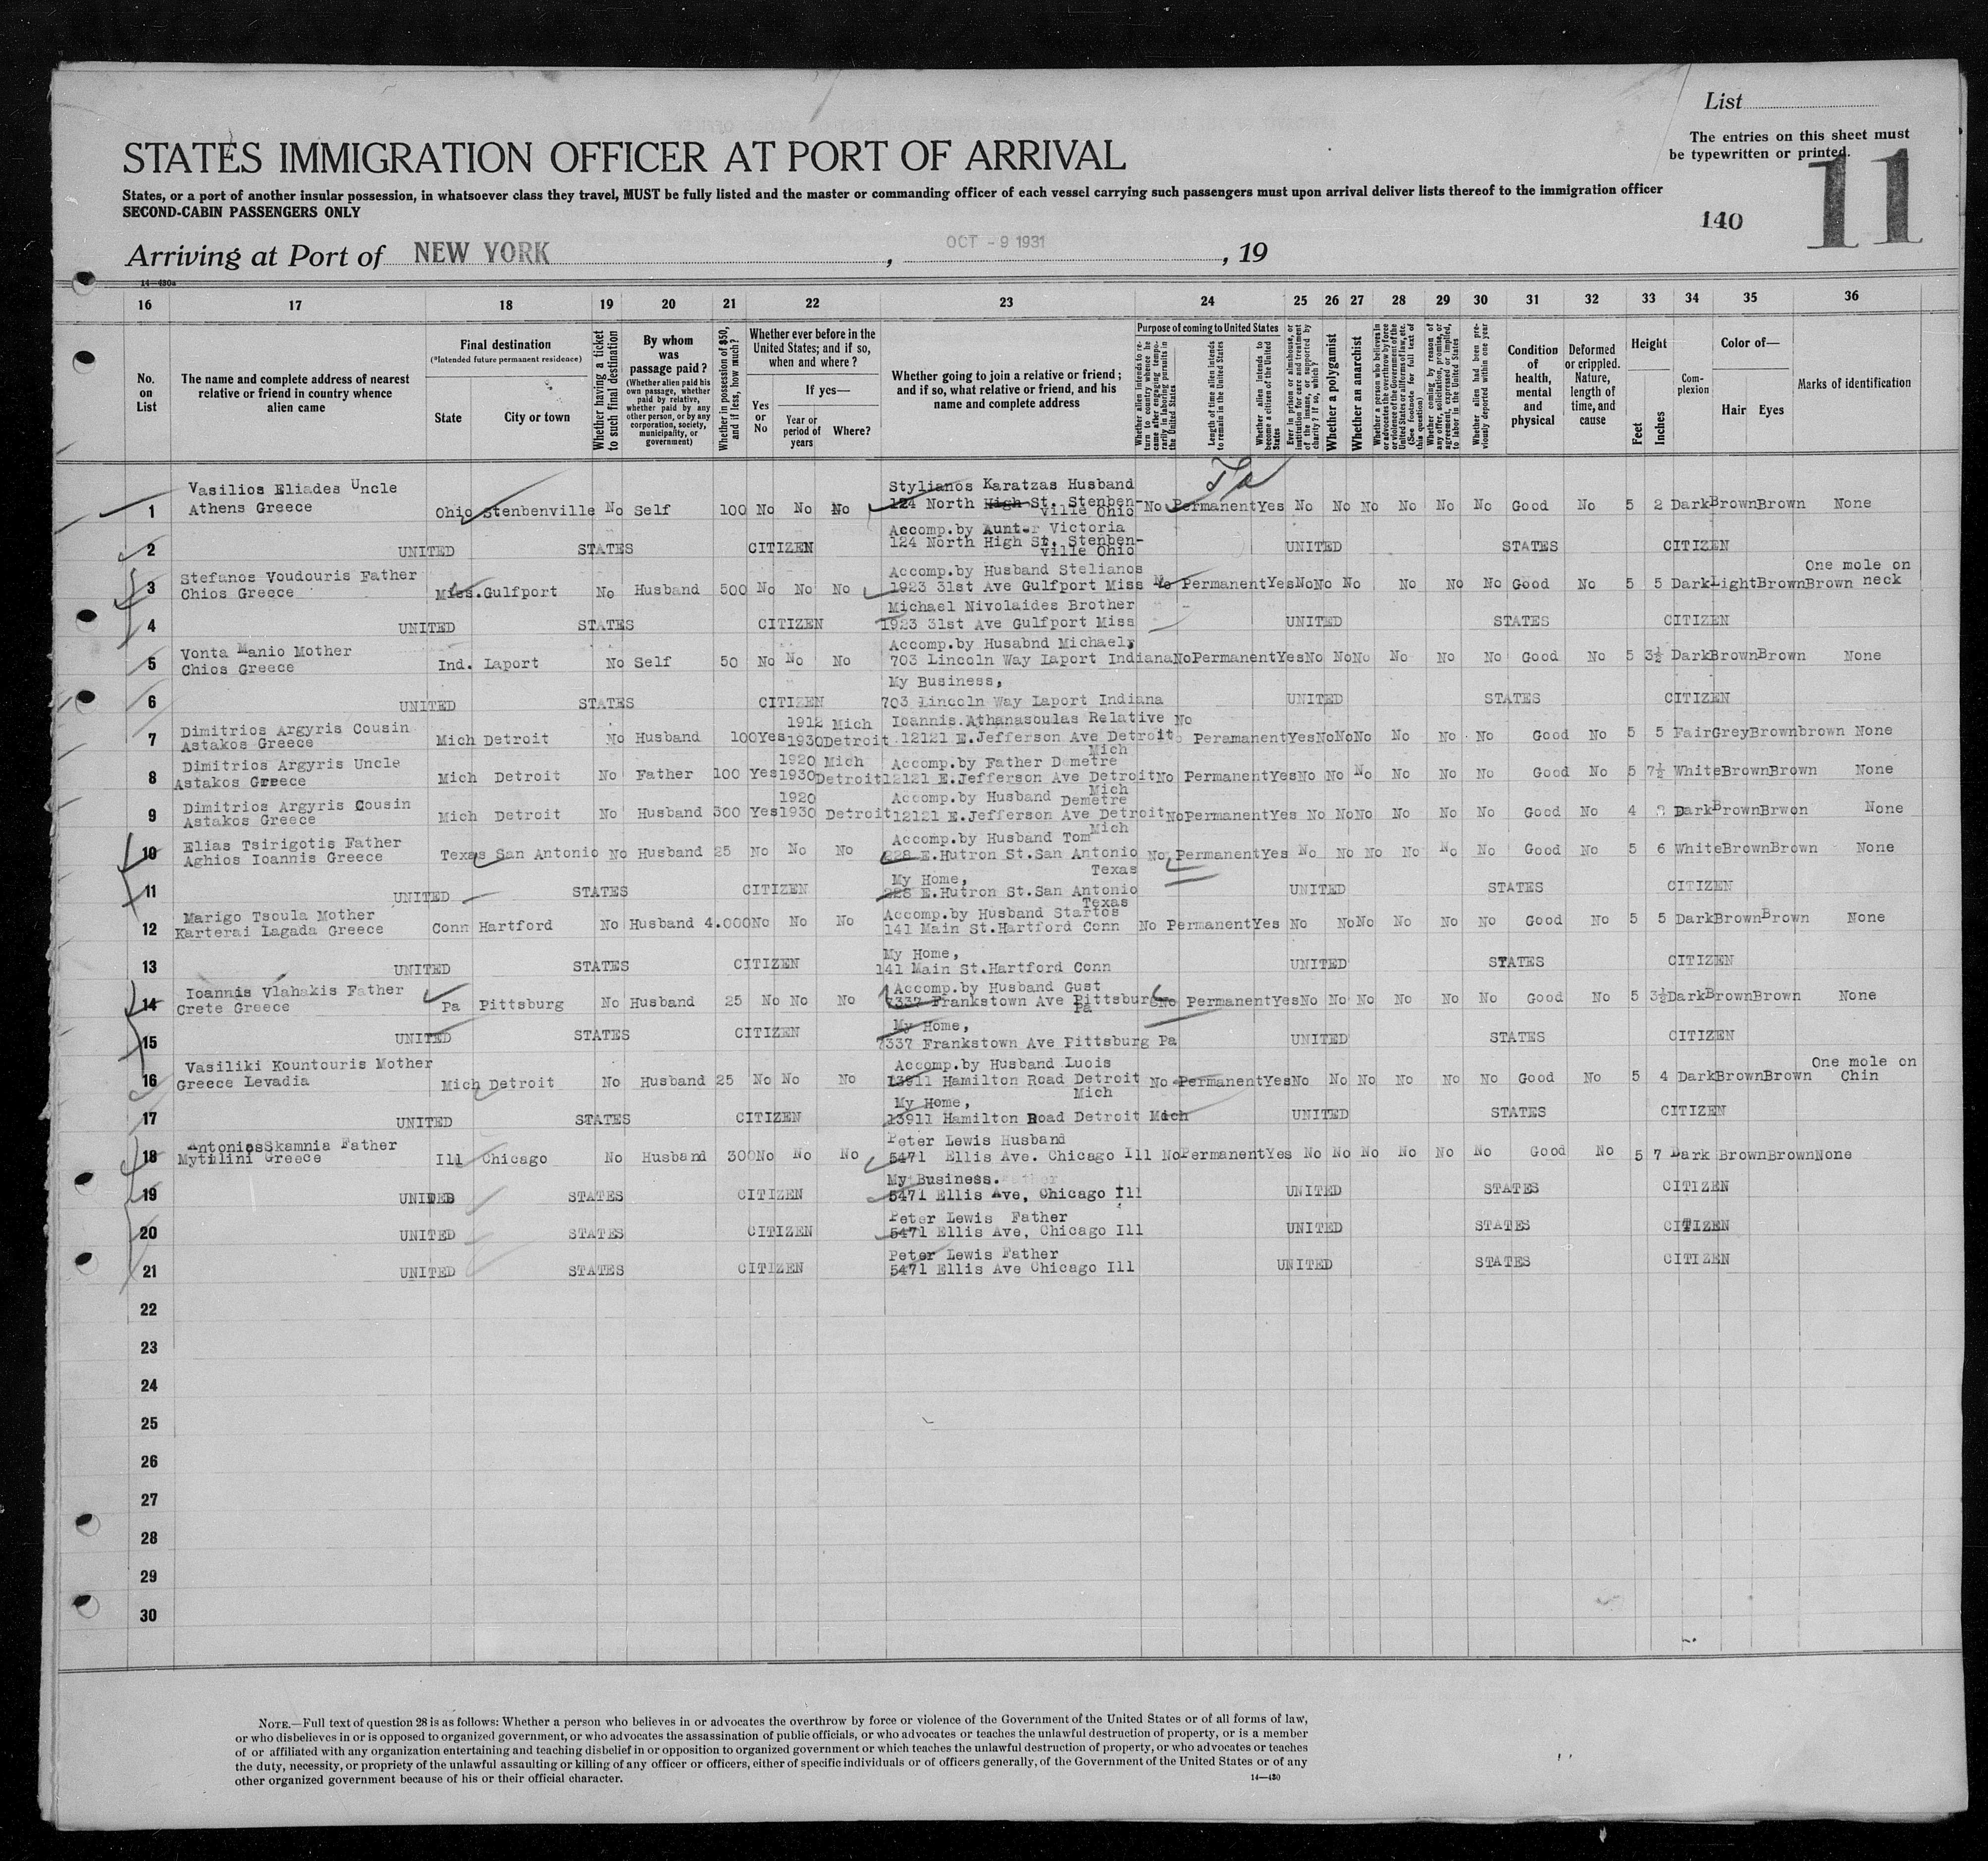 List
The entries on this sheet must
be typewritten or printed.
11
140
STATES IMMIGRATION OFFICER AT PORT OF ARRIVAL
States, or a port of another insular possession, in whatsoever class they travel, MUST be fully listed and the master or commanding officer of each vessel carrying such passengers must upon arrival deliver lists thereof to the immigration officer
SECOND-CABIN PASSENGERS ONLY
Arriving at Port of NEW YORK , OCT - 9 1931 , 19
14—430a
16 17 18 19 20 21 22 23 24 25 26 27 28 29 30 31 32 33 34 35 36
No. on List
The name and complete address of nearest relative or friend in country whence alien came
Final destination (*Intended future permanent residence)
State
City or town
Whether having a ticket to such final destination
By whom was passage paid? (Whether alien paid his own passage, whether paid by relative, whether paid by any other person, or by any corporation, society, municipality, or government)
Whether in possession of $50, and if less, how much?
Whether ever before in the United States; and if so, when and where?
Yes or No
If yes—
Year or period of years
Where?
Whether going to join a relative or friend; and if so, what relative or friend, and his name and complete address
Purpose of coming to United States
Whether alien intends to return to country whence he came after engaging temporarily in laboring pursuits in the United States
Length of time alien intends to remain in the United States
Whether alien intends to become a citizen of the United States
Ever in prison or almshouse, or institution for care and treatment of the insane, or supported by charity? If so, which?
Whether a polygamist
Whether an anarchist
Whether a person who believes in or advocates the overthrow by force or violence of the Government of the United States or all forms of law, etc. (See footnote for full text of this question)
Whether coming by reason of any offer, solicitation, promise, or agreement, expressed or implied, to labor in the United States
Whether alien had been previously deported within one year
Condition of health, mental and physical
Deformed or crippled. Nature, length of time, and cause
Height
Feet
Inches
Complexion
Color of—
Hair Eyes
Marks of identification
1 Vasilios Eliades Uncle
Athens Greece Ohio Stenbenville No Self 100 No No No Stylianos Karatzas Husband
124 North High St. Stenben-
ville Ohio No Permanent Yes No No No No No No Good No 5 2 Dark Brown Brown None
2 UNITED STATES CITIZEN Accomp.by Aunt Victoria
124 North High St. Stenben-
ville Ohio UNITED STATES CITIZEN
3 Stefanos Voudouris Father
Chios Greece Miss. Gulfport No Husband 500 No No No Accomp.by Husband Stelianos
1923 31st Ave Gulfport Miss No Permanent Yes No No No No No No Good No 5 5 Dark Light Brown Brown One mole on
neck
4 UNITED STATES CITIZEN Michael Nivolaides Brother
1923 31st Ave Gulfport Miss UNITED STATES CITIZEN
5 Vonta Manio Mother
Chios Greece Ind. Laport No Self 50 No No No Accomp.by Husabnd Michael,
703 Lincoln Way Laport Indiana No Permanent Yes No No No No No No Good No 5 3½ Dark Brown Brown None
6 UNITED STATES CITIZEN My Business,
703 Lincoln Way Laport Indiana UNITED STATES CITIZEN
7 Dimitrios Argyris Cousin
Astakos Greece Mich Detroit No Husband 100 Yes 1912 1930 Mich Detroit Ioannis.Athanasoulas Relative
12121 E.Jefferson Ave Detroit
Mich No Peramanent Yes No No No No No No Good No 5 5 Fair Grey Brown brown None
8 Dimitrios Argyris Uncle
Astakos Greece Mich Detroit No Father 100 Yes 1920 1930 Mich Detroit Accomp.by Father Demetre
12121 E.Jefferson Ave Detroit
Mich No Permanent Yes No No No No No No Good No 5 7½ White Brown Brown None
9 Dimitrios Argyris Cousin
Astakos Greece Mich Detroit No Husband 300 Yes 1920 1930 Detroit Accomp.by Husband Demetre
12121 E.Jefferson Ave Detroit
Mich No Permanent Yes No No No No No No Good No 4 Dark Brown Brwon None
10 Elias Tsirigotis Father
Aghios Ioannis Greece Texas San Antonio No Husband 25 No No No Accomp.by Husband Tom
228 E.Hutron St.San Antonio
Texas No Permanent Yes No No No No No No Good No 5 6 White Brown Brown None
11 UNITED STATES CITIZEN My Home,
228 E.Hutron St.San Antonio
Texas UNITED STATES CITIZEN
12 Marigo Tsoula Mother
Karterai Lagada Greece Conn Hartford No Husband 4.000 No No No Accomp.by Husband Startos
141 Main St.Hartford Conn No Permanent Yes No No No No No No Good No 5 5 Dark Brown Brown None
13 UNITED STATES CITIZEN My Home,
141 Main St.Hartford Conn UNITED STATES CITIZEN
14 Ioannis Vlahakis Father
Crete Greece Pa Pittsburg No Husband 25 No No No Accomp.by Husband Gust
7337 Frankstown Ave Pittsburg
Pa No Permanent Yes No No No No No No Good No 5 3½ Dark Brown Brown None
15 UNITED STATES CITIZEN My Home,
7337 Frankstown Ave Pittsburg Pa UNITED STATES CITIZEN
16 Vasiliki Kountouris Mother
Greece Levadia Mich Detroit No Husband 25 No No No Accomp.by Husband Luois
13911 Hamilton Road Detroit
Mich No Permanent Yes No No No No No No Good No 5 4 Dark Brown Brown One mole on
Chin
17 UNITED STATES CITIZEN My Home,
13911 Hamilton Road Detroit Mich UNITED STATES CITIZEN
18 Antonios Skamnia Father
Mytilini Greece Ill Chicago No Husband 300 No No No Peter Lewis Husband
5471 Ellis Ave. Chicago Ill No Permanent Yes No No No No No No Good No 5 7 Dark Brown Brown None
19 UNITED STATES CITIZEN My Business.
5471 Ellis Ave, Chicago Ill UNITED STATES CITIZEN
20 UNITED STATES CITIZEN Peter Lewis Father
5471 Ellis Ave, Chicago Ill UNITED STATES CITIZEN
21 UNITED STATES CITIZEN Peter Lewis Father
5471 Ellis Ave Chicago Ill UNITED STATES CITIZEN
22
23
24
25
26
27
28
29
30
NOTE.—Full text of question 28 is as follows: Whether a person who believes in or advocates the overthrow by force or violence of the Government of the United States or of all forms of law,
or who disbelieves in or is opposed to organized government, or who advocates the assassination of public officials, or who advocates or teaches the unlawful destruction of property, or is a member
of or affiliated with any organization entertaining and teaching disbelief in or opposition to organized government or which teaches the unlawful destruction of property, or who advocates or teaches
the duty, necessity, or propriety of the unlawful assaulting or killing of any officer or officers, either of specific individuals or of officers generally, of the Government of the United States or of any
other organized government because of his or their official character.
14—430